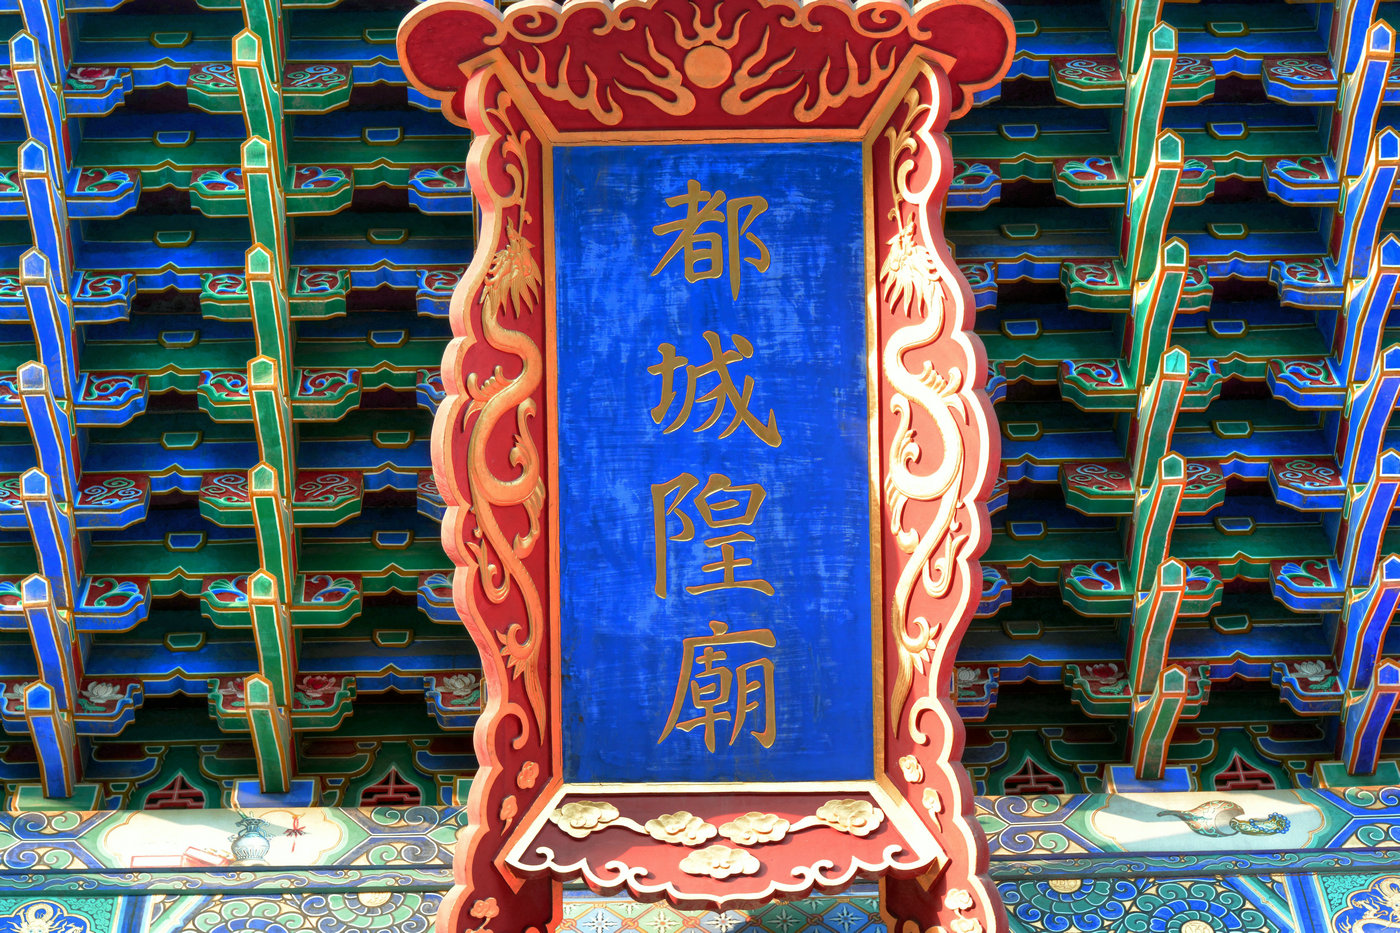 都城隍廟